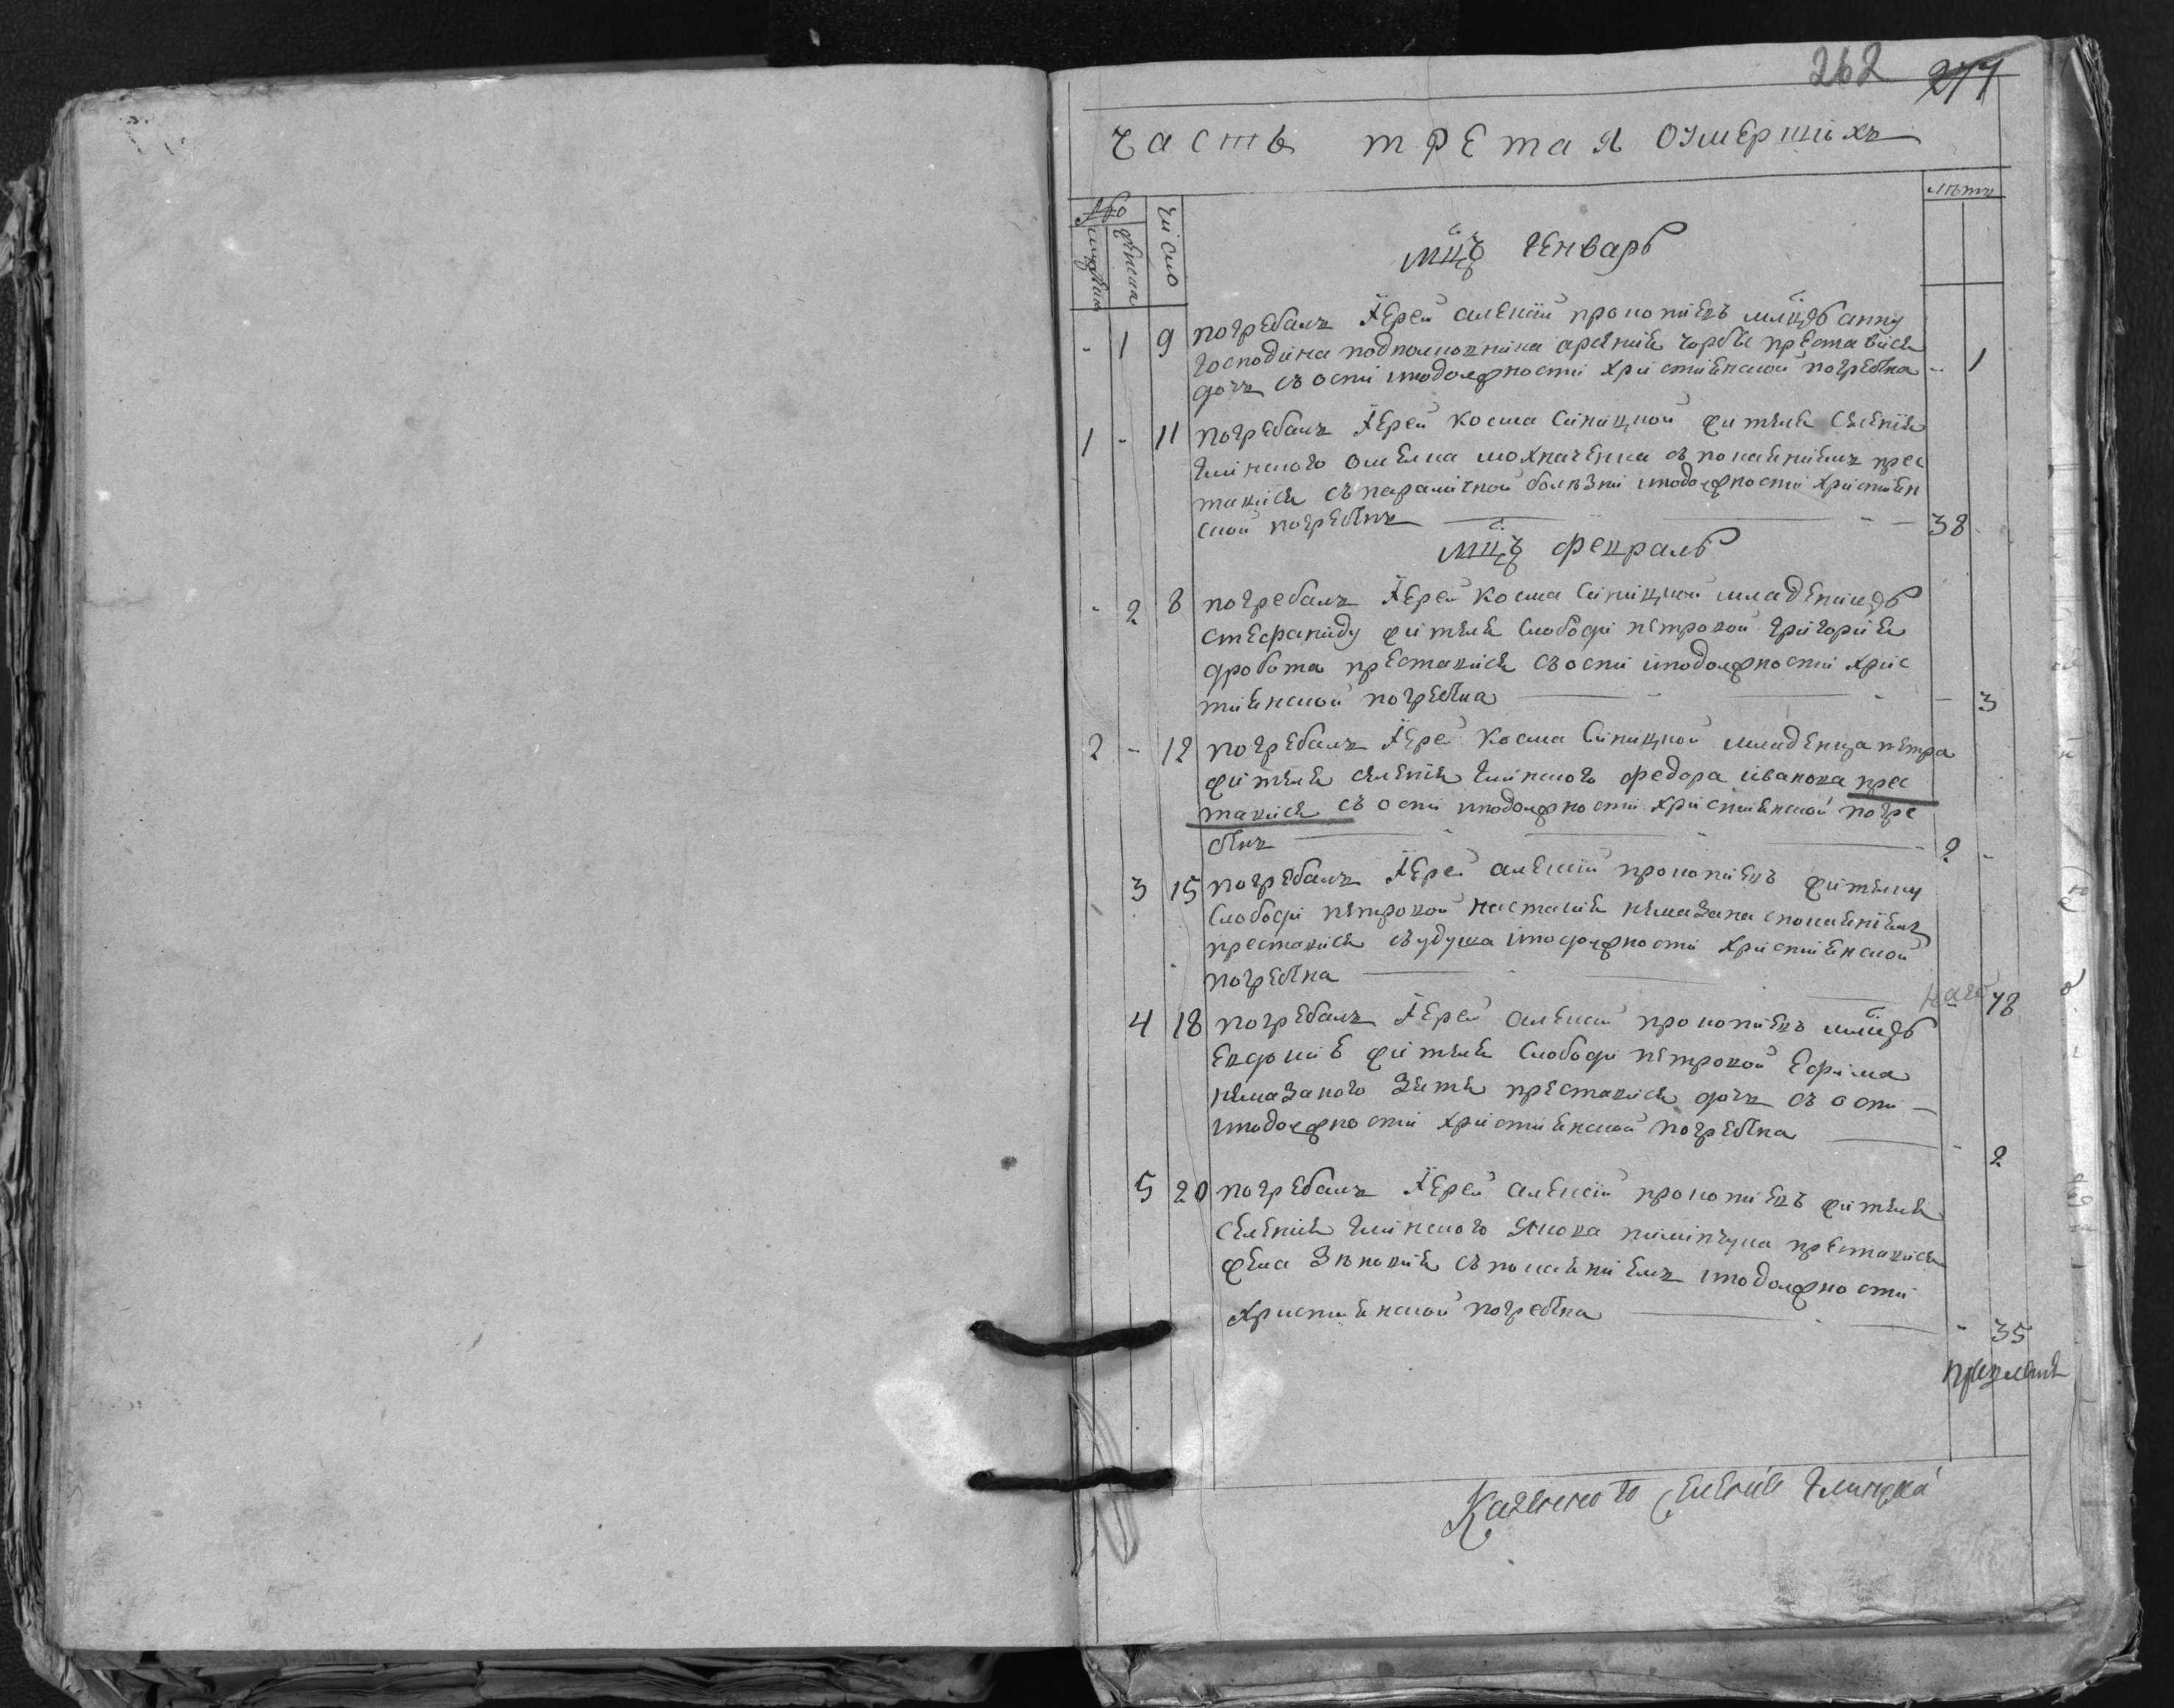 262 277
часть третая оумершихъ
лѣтъ
число
мцъ генварь
- 1 9 погребалъ Іерей алексій прокопіевъ млнцъ анну
господина подполковника арсенія преставися
дочъ съ оспи подолжности христіянской погребена - 1
1 - 11 погребалъ Іерей косма синицкой жителя селенія
глинского омелка мохначенка съ покаяніемъ прес
тавися съ паралічной болѣзни подолжности христіян
ской погребенъ - 38
мцъ февраль
- 2 8 погребалъ Іерей косма синицкой младеницъ
стефаниду жителя слободи петровой григорія
дробота преставися съ оспи подолжности хрис
тиянской погребена - 3
2 - 12 погребалъ Іерей косма синицкой младенца петра
жителя селенія глинского федора иванова прес
тавися съ оспи подолжности христіянской погре
бенъ 2 -
3 15 погребалъ Іерей алексій прокопіевъ жителку
слободи петровой настасія немазана споканіемъ
преставися съ удуша подолжности христіянской
погребена 78
4 18 погребалъ Іерей алексій прокопіевъ млнцъ
евдокія жителя слободи петровой ефима
немазаного зятя преставися дочъ съ оспи
подолжности христіянской погребена - 2
5 20 погребалъ Іерей алексій прокопіевъ жителя
селенія глинского якова преставися
жена зѣновія съ покаяніемъ подолжности
христіянской погребена - 35
Казенного селенія Глинска